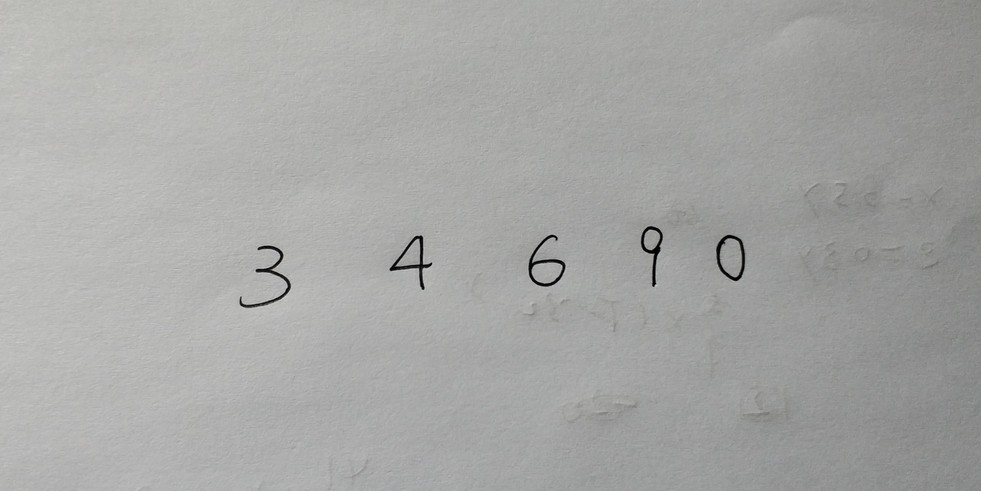 3 4 6 9 0